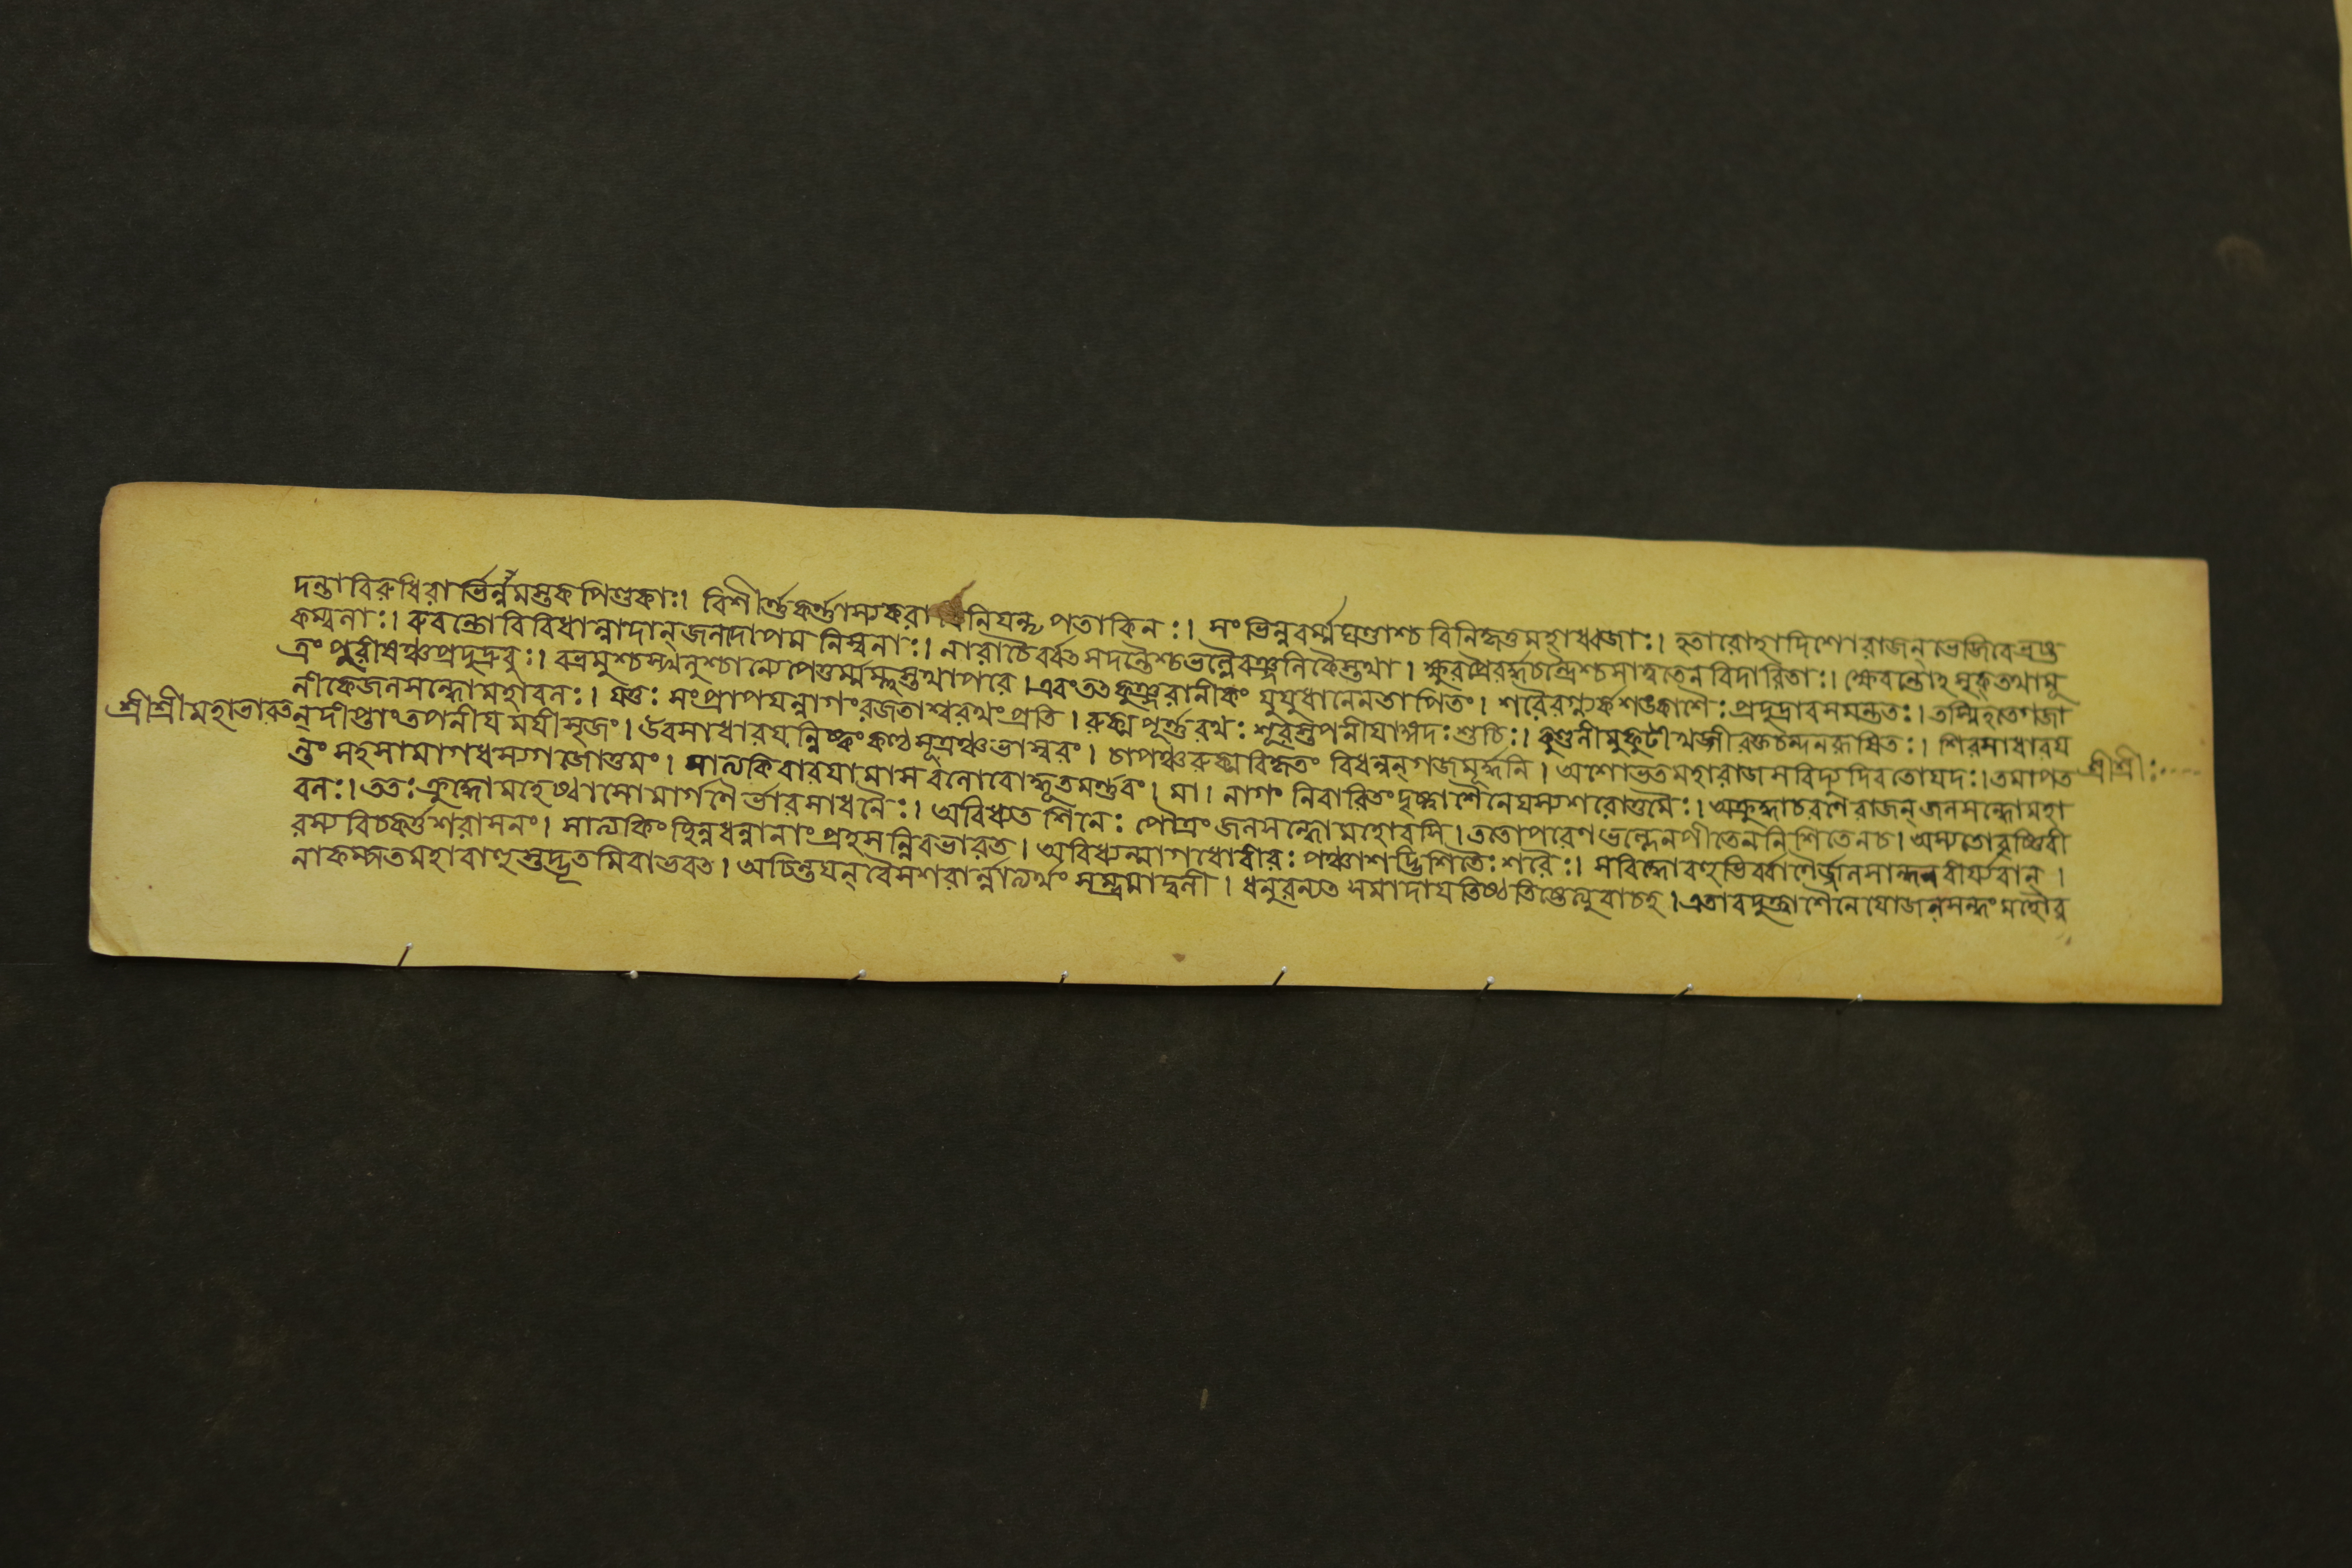 দন্তাবিরুধিরা র্ভিন্নমস্তকপিণ্ডকাঃ। বিশীর্ণ্ণকর্ণ্ণাস্যকরা বিনিযন্তৃপতাকিনঃ। সংভিন্নবর্ম্মঘণ্টাশ্চ বিনিহ্নত্তমহাধ্বজাঃ। হতারোহাদিশোরাজন্ ভেজিরেভ্রষ্ট
কম্বলাঃ। রুবন্তোবিবিধান্নাদান্ জলদোপমনিস্বনাঃ। নারাচৈর্ব্বৎসদন্তৈশ্চভল্লৈরঞ্জলিকৈস্তথা। ক্ষুরপ্রৈরর্দ্ধচন্দ্রৈশ্চসাত্বতেনবিদারিতাঃ। ক্ষরন্তোঽসৃক্ তথামূ
ত্রং পুরীষঞ্চপ্রদুদ্রুবুঃ। বভ্রমুশ্চস্খলুশ্চান্যেপেতুর্ম্মম্লুস্তথাপরে। এবংতৎকুঞ্জরানীকং যুযুধানেনতাপিতং। শরৈরগ্ন্যর্কশঙ্কাশৈঃ প্রদুদ্রাবসমন্ততঃ। তস্মিন্হতেগজা
নীকেজলসন্ধোমহাবলঃ। যত্তঃ সংপ্রাপযন্নাগং রজতাশ্বরথংপ্রতি। রুক্মপূর্ণ্ণরথঃ শূরস্তপনীযাঙ্গদঃ শুচিঃ। কুণ্ডলীমুকুটীখড্গীরক্তচন্দনরূষিতঃ। শিরসাধারয
শ্রীশ্রীমহাভারত ন্ দীপ্তাং তপনীযমযীংস্রজং। উরসাধারযন্নিষ্কংকণ্ঠসূত্রঞ্চভাস্বরং। চাপঞ্চরুক্মবিহ্নতং বিধন্বন্ গজমূর্দ্ধনি। অশোভতমহারাজসবিদ্যুদিবতোযদঃ। তমাপত শ্রীশ্রীঃ
ন্তং সহসামাগধস্যগজোত্তমং। সাত্যকিবারযামাস বেলোবোদ্ধূতমর্ণ্ণবং। মা। নাগং নিবারিতংদৃষ্ট্বাশৈনেযস্যশরোত্তমৈঃ। অক্রুধ্যাচরণেরাজন্ জলসন্ধোমহা
বলঃ। ততঃ ক্রুদ্ধোমহেষ্বাসোমার্গণৈ র্ভারসাধনৈঃ। অবিধ্যত শিনেঃ পৌত্রং জলসন্ধোমহোরসি। ততোপরেণভল্লেনপীতেননিশিতেনচ। অস্যতোবৃষ্ণিবী
রস্যবিচকর্ত্তশরাসনং। সাত্যকিংছিন্নধন্বানাংপ্রহসন্নিবভারত। অবিধ্যন্মাগধোবীরঃ পঞ্চাশদ্ভিশিতৈঃ শরৈঃ। সবিদ্ধোবহুভির্ব্বাণৈর্জ্জলসন্ধেনবীর্য্যবান্।
নাকম্পতমহাবাহুস্তুদ্ভূতমিবাভবত। অচিন্তযন্ বৈসশরান্নাত্যর্থং সম্ভ্রমাদ্বলী। ধনুরন্যত সমাদাযতিষ্ঠতিষ্ঠেত্যুবাচহ। এতাবদুক্ত্বাশৈনেযোজলসন্ধংমহৌর